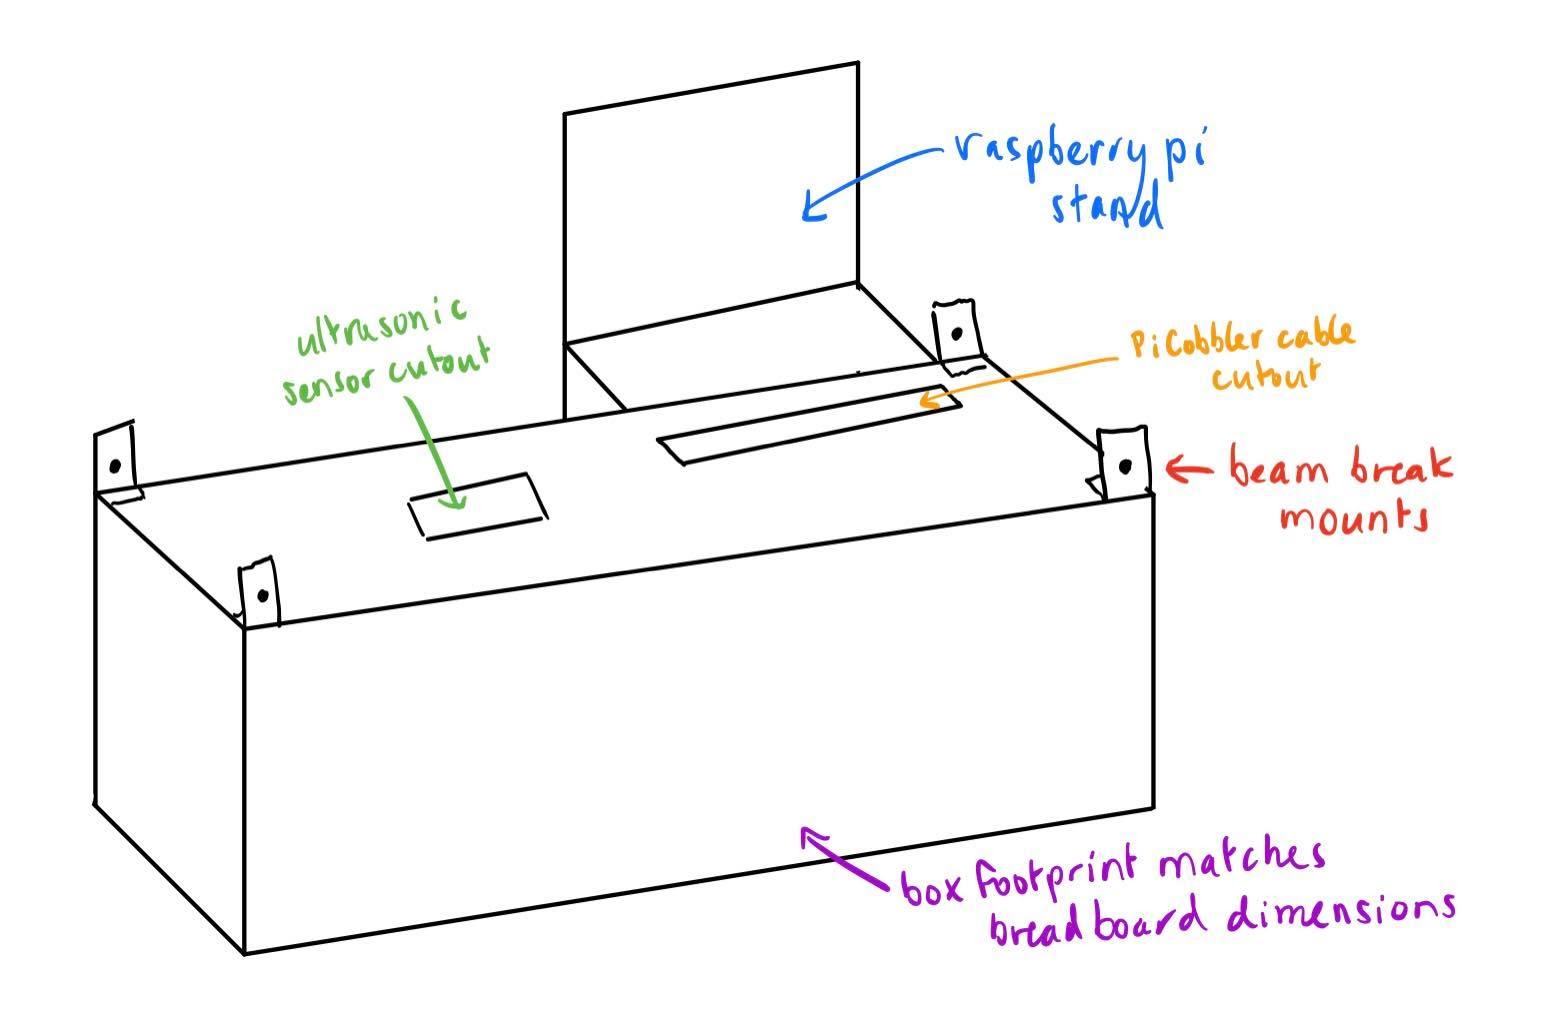 raspberry pi
stand
ultrasonic
sensor cutout
PiCobbler cable
cutout
beam break
mounts
box footprint matches
breadboard dimensions